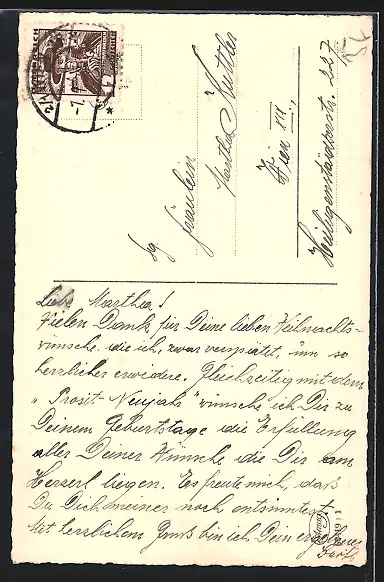 Sg.
Fräulein
Martha
Wien XII.,
Heiligenstädterstr. 227
Liebe Martha!
Vielen Dank für Deine lieben Weihnachts-
wünsche, die ich, zwar verspätet, um so
herzlicher erwidere. Gleichzeitig mit dem
"Prosit-Neujahr" wünsche ich Dir zu
Deinem Geburtstage die Erfüllung
aller Deiner Wünsche die Dir am
Herzerl liegen. Es freute mich, daß
Du Dich meiner noch entsinntest.
Mit herzlichem Gruß bin ich Dein